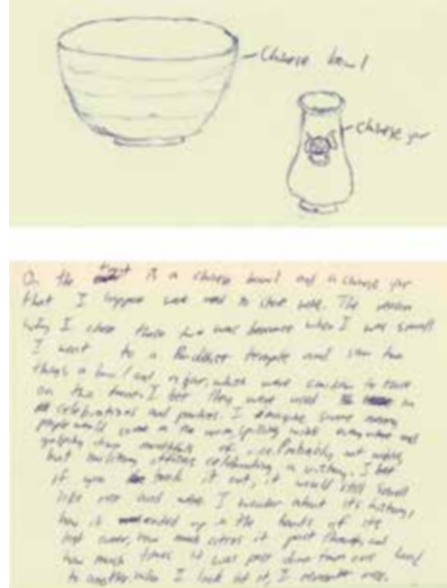 Chinese bowl
Chinese jar
On the front is a chinese bowl and a chinese jar
that I suppose was used to store wine. The reason
why I chose these two was because when I was small
I went to a Buddhist temple and saw two
things a bowl and a jar, which were similar to those
on the front. I bet they were used in
celebrations and parties. I imagine some many
people would come in the room, spilling wine everywhere and
gulping down mouthfuls of rice. Probably not nobles
but military officers celebrating a victory. I bet
if you took it out, it would still smell
like rice and wine. I wonder about its history,
how it ended up in the hands of its
last owner, how much stories it past through, and
how much times it was past down from one hand
to another when I look at it, I remember